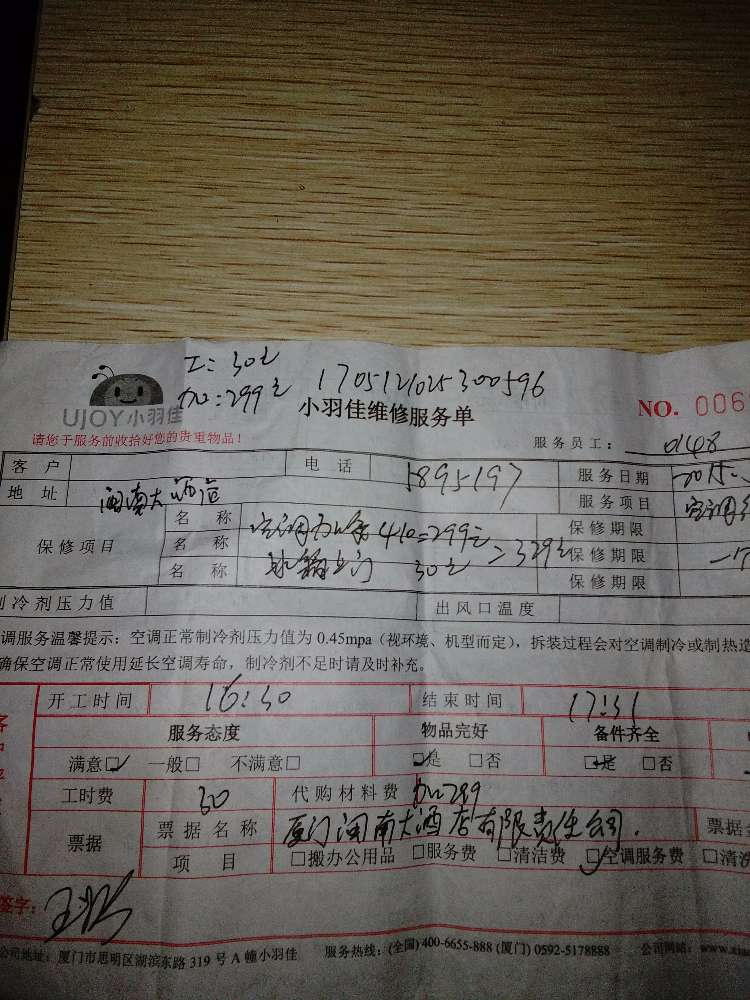 工:30元
加:299元
1705121025300596
UJOY小羽佳
小羽佳维修服务单
NO. 006
请您于服务前收拾好您的贵重物品!
服务员工: 0148
客户 电话 5895197 服务日期 2015
地址 闽南大酒店 服务项目 空调
保修项目 名称 410=299元 保修期限
名称 30元 =329元 保修期限
名称 保修期限
制冷剂压力值 出风口温度
调服务温馨提示:空调正常制冷剂压力值为 0.45mpa(视环境、机型而定),拆装过程会对空调制冷或制热造
确保空调正常使用延长空调寿命,制冷剂不足时请及时补充。
开工时间 16:30 结束时间 17:31
服务态度 物品完好 备件齐全
满意☑ 一般□ 不满意□ ☑是 □否 ☑是 □否
工时费 30 代购材料费 加299
票据 票据名称 厦门闽南大酒店有限责任公司. 票据金
项目 □搬办公用品 □服务费 □清洁费 ☑空调服务费 □清洗
签字:
公司地址:厦门市思明区湖滨东路 319 号 A 幢小羽佳 服务热线:(全国)400-6655-888 (厦门) 0592-5178888 公司网站:www.xia